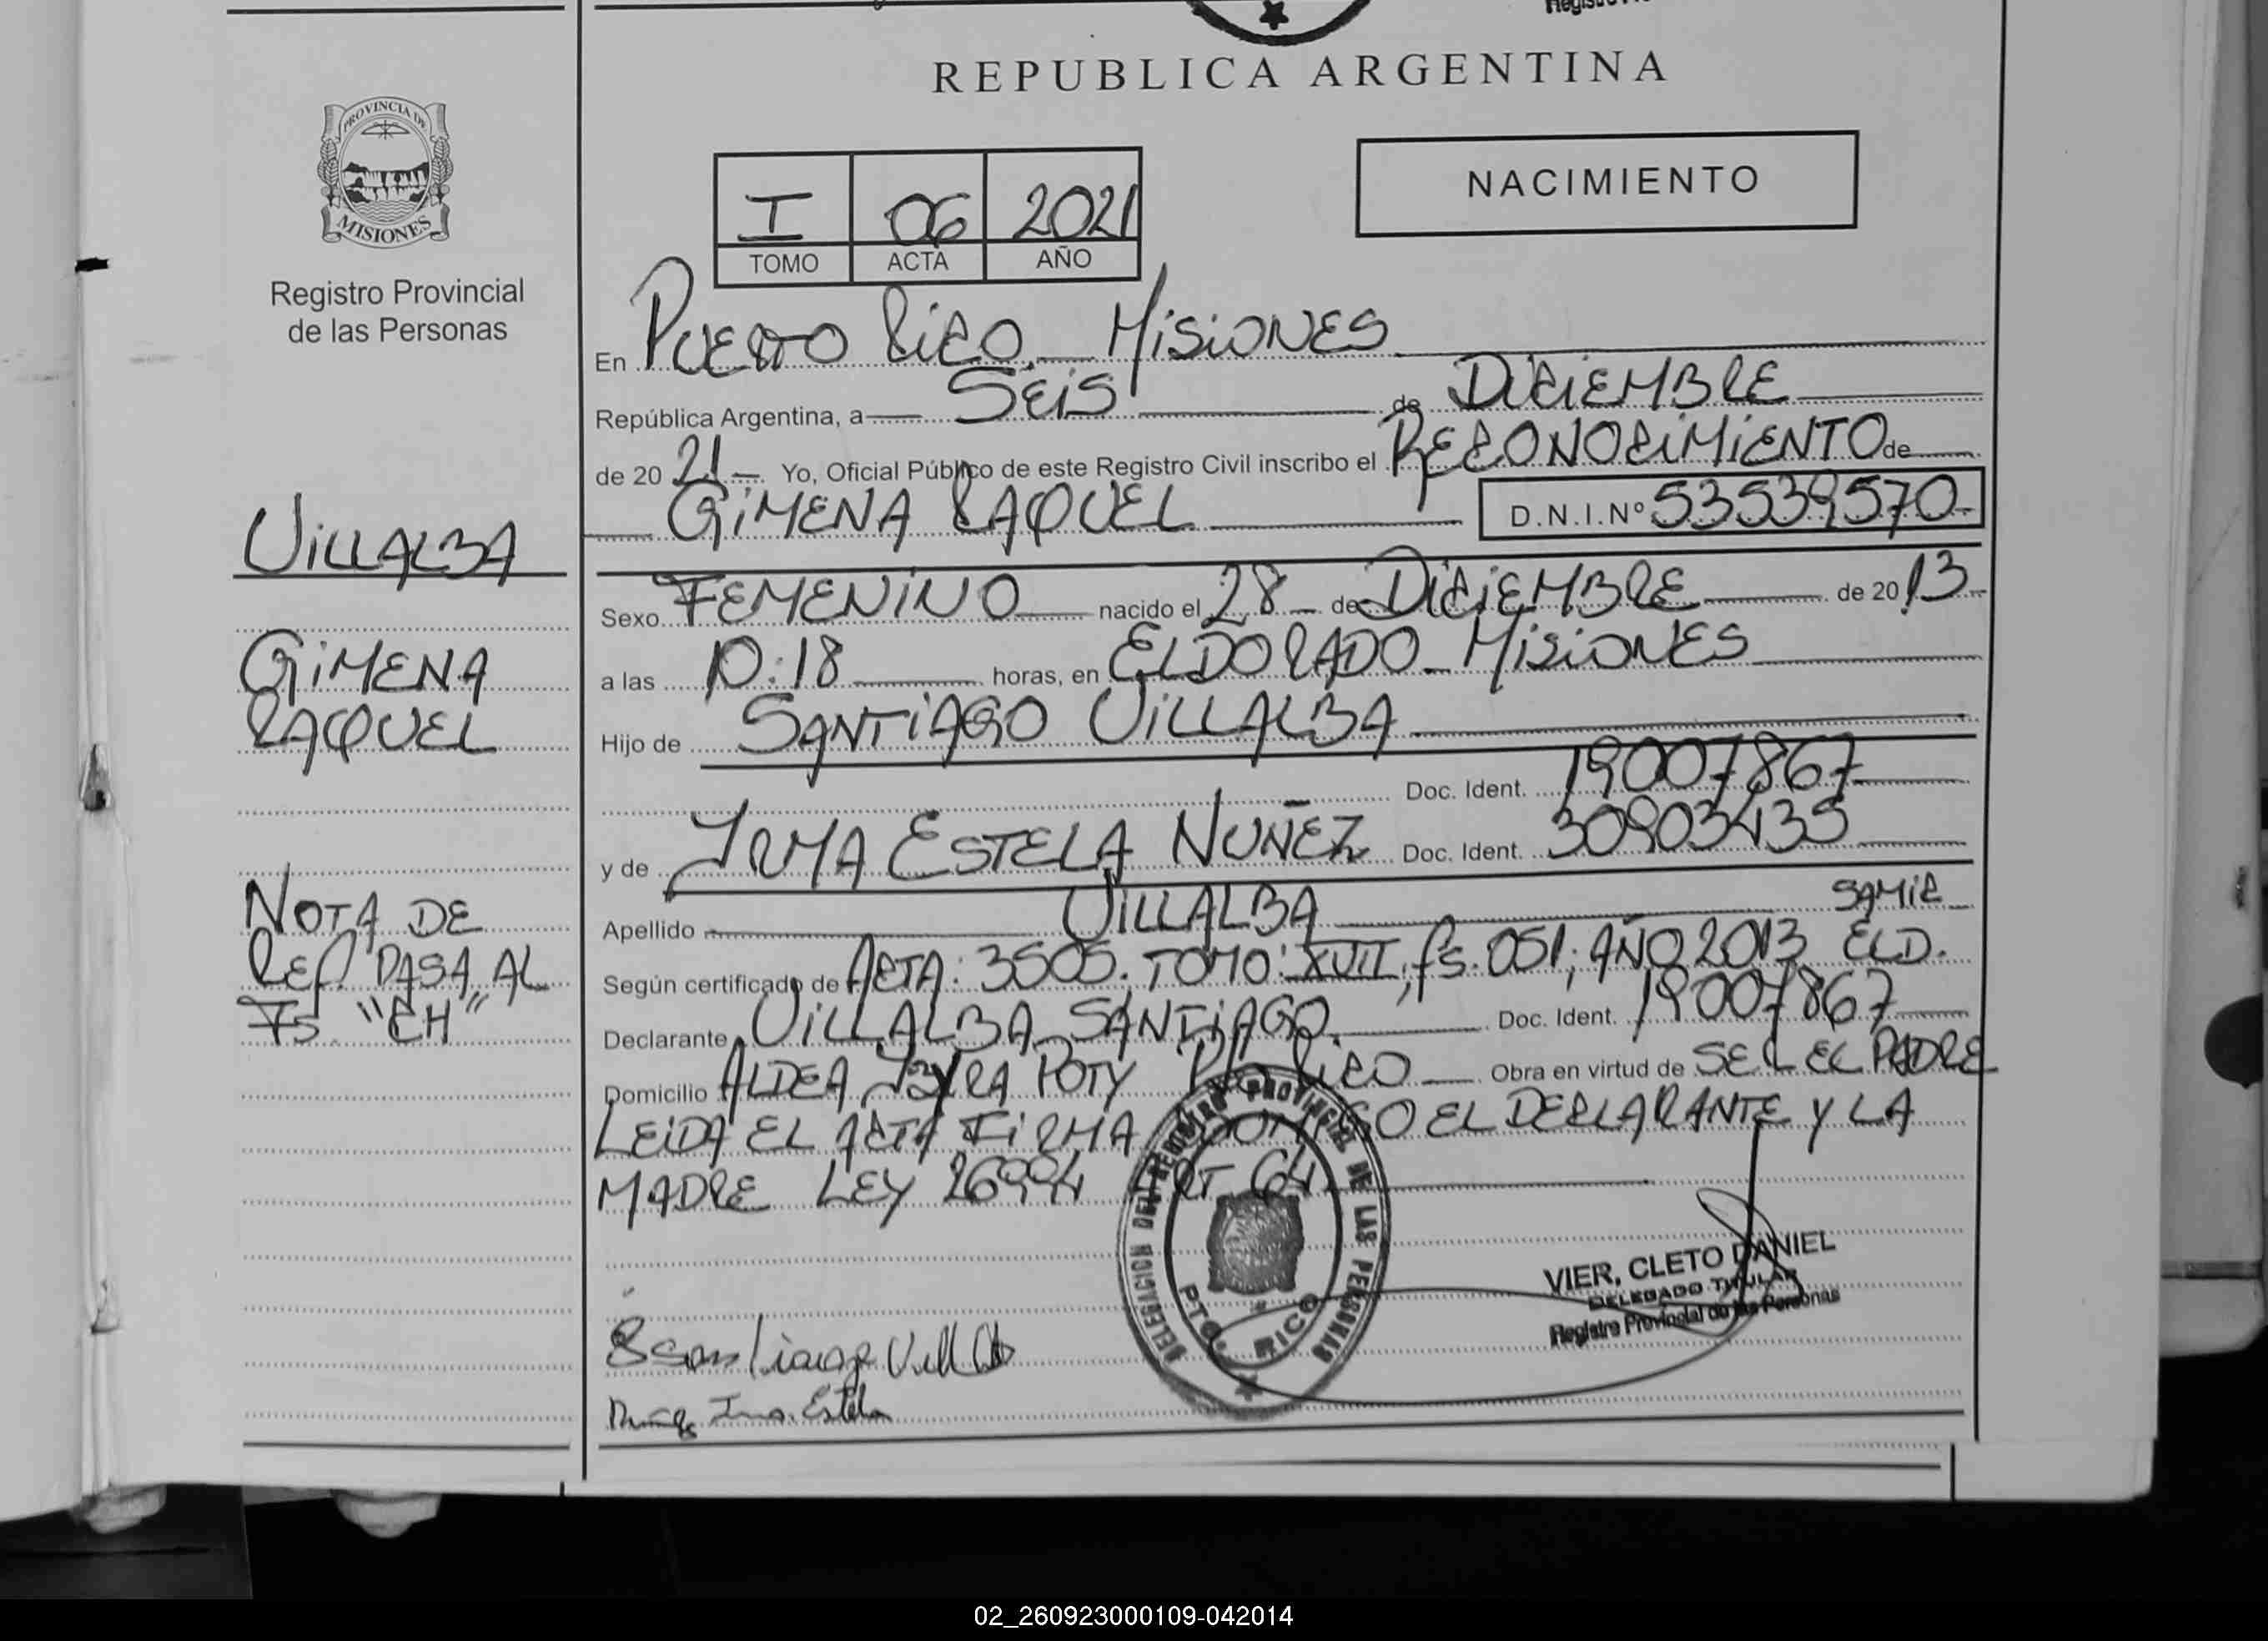 REPUBLICA ARGENTINA
PROVINCIA DE
MISIONES
Registro Provincial
de las Personas
NACIMIENTO
I 06 2021
TOMO ACTA AÑO
En PUERTO RICO - MISIONES
República Argentina, a SEIS de DICIEMBRE
de 20 21 Yo, Oficial Público de este Registro Civil inscribo el RECONOCIMIENTO de
GIMENA RAQUEL D.N.I.Nº 53539570
VILLALBA
GIMENA
RAQUEL
NOTA DE
REF. PASA AL
FS "CH"
Sexo FEMENINO nacido el 28 de DICIEMBRE de 20 13
a las 10:18 horas, en ELDORADO - MISIONES
Hijo de SANTIAGO VILLALBA
Doc. Ident. 19007867
y de IRMA ESTELA NUÑEZ Doc. Ident. 30903435
Apellido VILLALBA SAMIC
Según certificado de ACTA: 3505. TOMO: XVII, fs. 051; AÑO 2013 ELD.
Declarante VILLALBA SANTIAGO Doc. Ident. 19007867
Domicilio ALDEA POTY Pto RICO Obra en virtud de SER EL PADRE
LEIDA EL ACTA FIRMA CONMIGO EL DECLARANTE Y LA
MADRE LEY 26994 ART 64
DELEGACION DEL REGISTRO PROVINCIAL DE LAS PERSONAS
PTO. RICO
VIER, CLETO DANIEL
DELEGADO TITULAR
Registro Provincial de las Personas
Estela
02_260923000109-042014